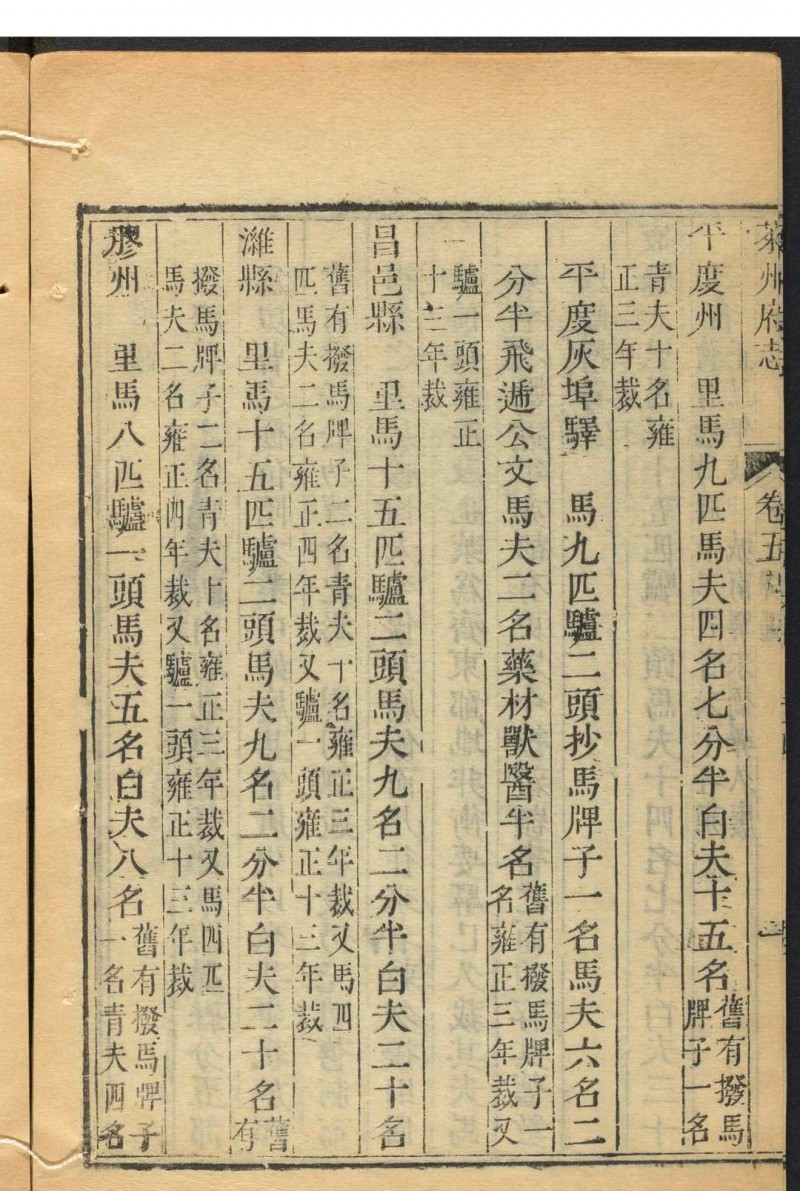 萊州府志 卷五
平度州 里馬九匹馬夫四名七分半白夫十五名舊有撥馬
牌子一名
青夫十名雍
正三年裁
平度灰埠驛 馬九匹驢二頭抄馬牌子一名馬夫六名二
分半飛遞公文馬夫二名藥材獸醫半名舊有撥馬牌子一
名雍正三年裁又
驢一頭雍正
十三年裁
昌邑縣 里馬十五匹驢二頭馬夫九名二分半白夫二十名
舊有撥馬牌子二名青夫十名雍正三年裁又馬四
匹馬夫二名雍正四年裁又驢一頭雍正十三年裁
濰縣 里馬十五匹驢二頭馬夫九名二分半白夫二十名舊
有
撥馬牌子二名青夫十名雍正三年裁又馬四匹
馬夫二名雍正四年裁又驢一頭雍正十三年裁
膠州 里馬八匹驢一頭馬夫五名白夫八名舊有撥馬牌子
一名青夫四名